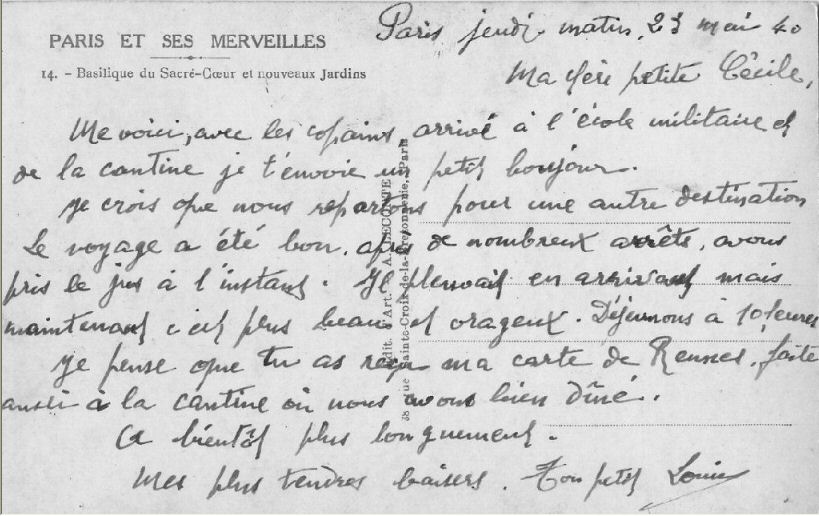 PARIS ET SES MERVEILLES
14. - Basilique du Sacré-Cœur et nouveaux Jardins
Paris jeudi matin, 23 mai 40
Ma chère petite Cécile,
Me voici, avec les copains, arrivé à l'école militaire et
de la cantine je t'envoie un petit bonjour.
Je crois que nous repartons pour une autre destination
Le voyage a été bon, après de nombreux arrêts, avons
pris le jus à l'instant. Il pleuvait en arrivant mais
maintenant c'est plus beau et orageux. Déjeunons à 10 heures
Je pense que tu as reçu ma carte de Rennes, faite
aussi à la cantine où nous avons bien dîné.
A bientôt plus longuement.
Mes plus tendres baisers. Ton petit Louis
Édit. d'Art. A. LECONTE
38 rue Sainte-Croix-de-la-Bretonnerie, Paris